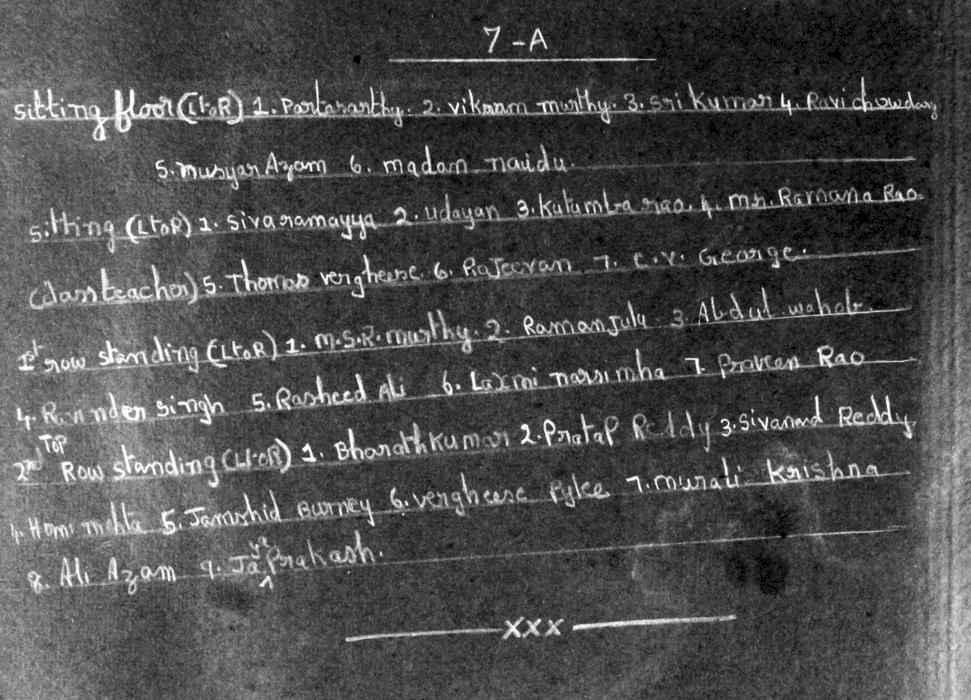 7-A
sitting floor (LtoR) 1. Partasarthy. 2. vikram murthy. 3. Sri Kumar 4. Ravi chowdary
5. musyar Azam 6. madam naidu.
sitting (LtoR) 1. Sivaramayya 2. Udayan 3. Kutumba rao. 4. mr. Ramana Rao
(class teacher) 5. Thomas verghese. 6. RaJeevan 7. C.V. George.
1st row standing (LtoR) 1. M.S.R. murthy. 2. RamanJulu 3. Abdul wahab.
4. Ravinder singh 5. Rasheed Ali 6. Laxmi narsimha 7. Praveen Rao
2nd TOP Row standing (LtoR) 1. Bharath Kumar 2. Pratap Reddy 3. Sivanand Reddy
4. Homi mehta 5. Jamshid Burney 6. vergheese Pylee 7. murali Krishna
8. Ali Azam 9. Jaya Prakash.
XXX